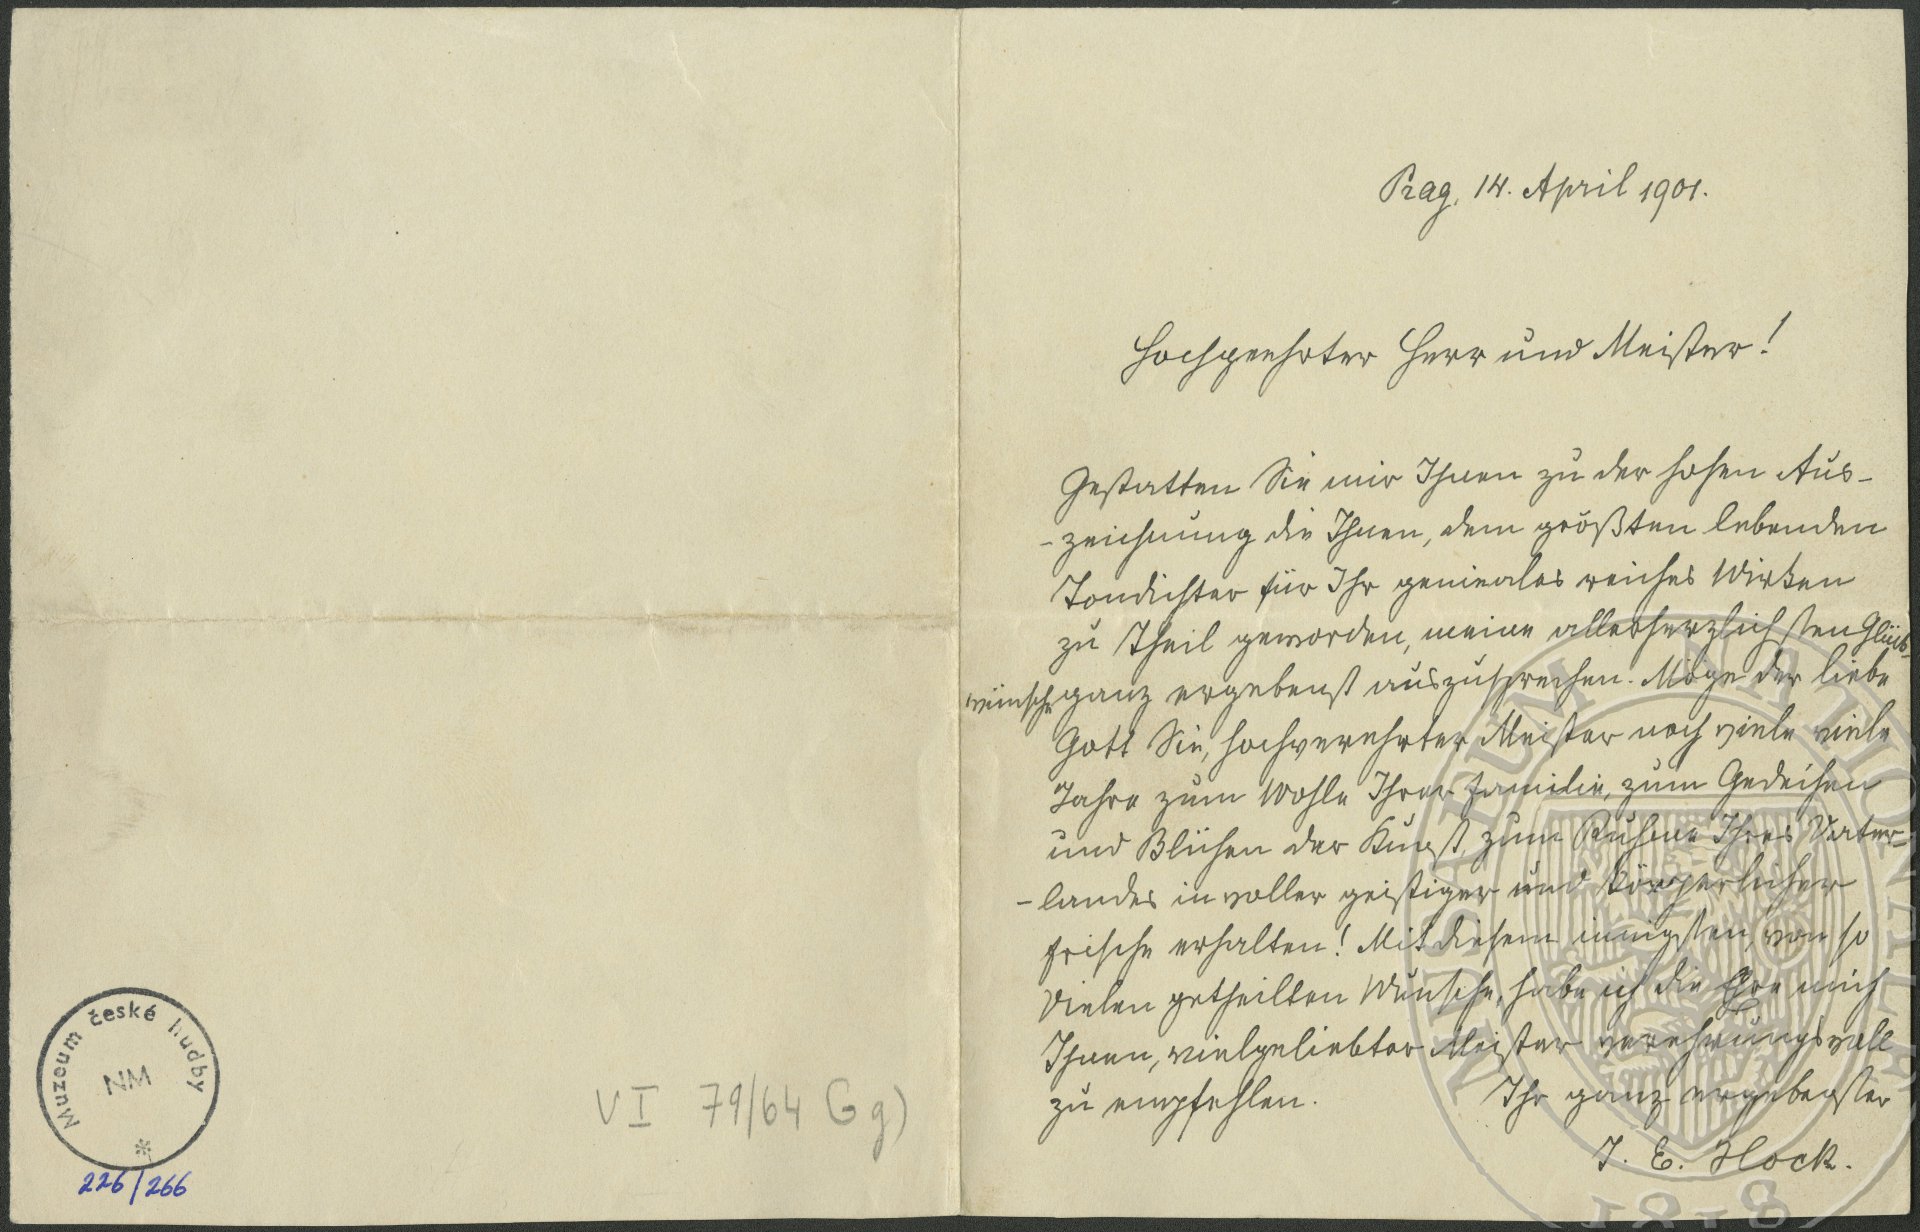 Prag, 14. April 1901.
Hochgeehrter Herr und Meister!
Gestatten Sie mir Ihnen zu der hohen Aus-
-zeichnung die Ihnen, dem größten lebenden
Tondichter für Ihr geniales reiches Wirken
zu Theil geworden, meine allerherzlichsten Glück-
wünsche ganz ergebenst auszusprechen. Möge der liebe
Gott Sie, hochverehrter Meister noch viele viele
Jahre zum Wohle Ihrer Familie, zum Gedeihen
und Blühen der Kunst zum Ruhme Ihres Vater-
-landes in voller geistiger und körperlicher
Frische erhalten! Mit diesem innigsten, von so
Vielen getheilten Wunsche, habe ich die Ehre mich
Ihnen, vielgeliebter Meister verehrungsvoll
zu empfehlen.
Ihr ganz ergebenster
J. E. Hock.
Muzeum české hudby
NM
*
226/266
VI 79/64 Gg)
MUSAEUM NATIONALE
1818